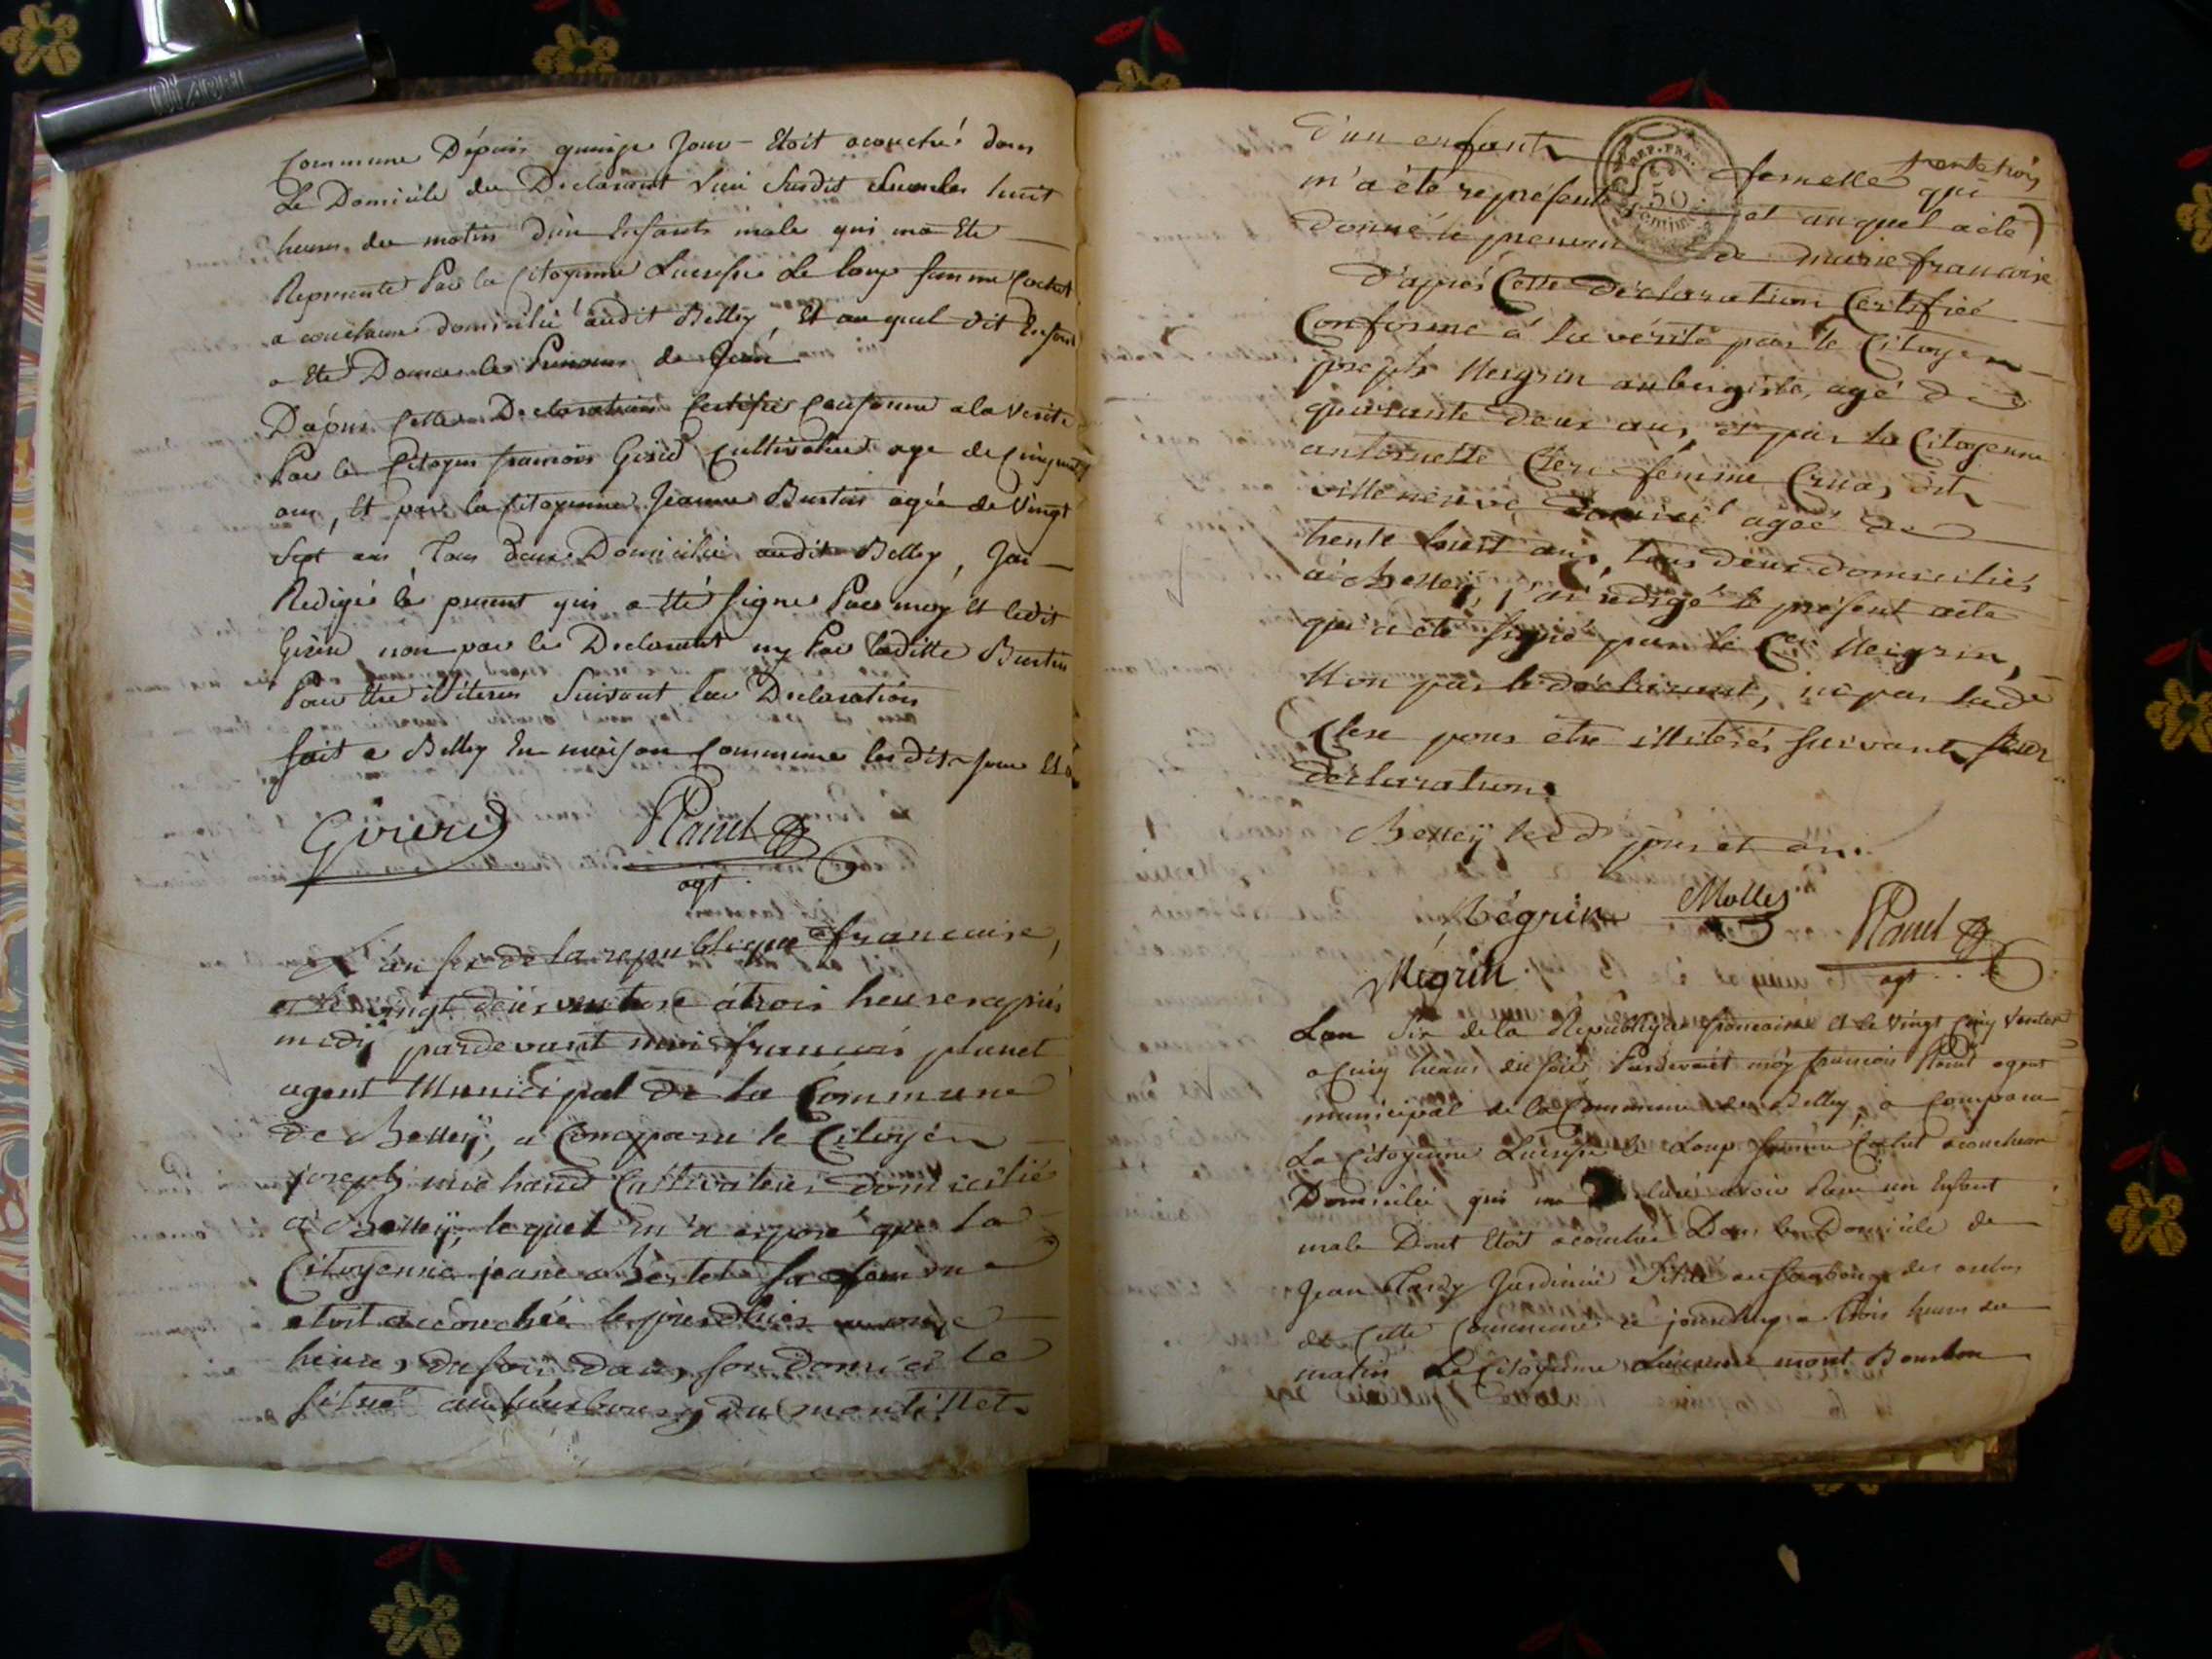 Commune Dépuis quinze Jour - Etoit acouché dans
Le Domicile du Declarant Lieu Susdit Sur les huit
heures du matin d'un Enfants male qui ma Ete
Represente Par la Citoyenne Lucresse Le loup femme Cochet
acoucheuse domicilié audit Belley, Et au quel dit Enfant
a Eté Donné les Prenoms de Jean
Dapres Cette Declaration Certifié Conforme a la Verite
Par le Citoyen francois Girerd Cultivateur age de Cinquante
ans, Et par la Citoyenne Jeanne Burtin agée de Vingt
Sept ans, Tous deux Domicilié audit Belley, Jai
Redigé le present qui a Eté signe Par moy Et ledit
Girerd non par le Declarant ny Par laditte Burtin
Pour Etre illiteres Suivant leur Declaration
fait a Belley En maison Commune les dit Jour Et an
Girerd Planet
agt
L'an six de la republique francaise,
et le vingt deux ventose à trois heures apres
midÿ pardevant moi francois planet
agent Municipal de la Commune
de Belleÿ, a Comparu le Citoyen
joseph michaud Cultivateur domicilié
à Belleÿ, lequel m'a exposé que la
Citoyenne jeane Bertet sa femme
etoit accouchée le jour d'hier a onze
heures du soir dans son domicile
situé au faubourg du montillet
trente trois
d'un enfant femelle qui
REP. FRA.
50
m'a été représenté et auquel a été
donné le prenom de marie francoise
d'après Cette déclaration Certifiée
Conforme à la vérité par le Citoyen
joseph Meigrin aubergiste, agé de
quarante deux ans, et par la Citoyenne
antoinette Clerc femme Cruas dit
villeneuve agée de
trente huit ans, tous deux domiciliés
à Belleÿ, j'ai rédigé le présent acte
qui a été signé par le Cen Meigrin,
Non par le déclarant, ni par lade
Clerc pour être illiterés suivant leur
déclaration.
Belleÿ lesd jour et an.
Mégrin Mollet Planet
Mégrin agt
Lan Six de la Republique francaise Et le Vingt Cinq Ventos
a Cinq heures du soir Pardevant moy francois Planet agent
municipal de la Commune de Belley, a Comparu
La Citoyenne Lucresse le Loup femme Cochet acoucheuse
Domicilié qui ma declaré avoir Recu un Enfant
male Dont Etoit acouchée Dans le Domicile de
Jean Tardy Jardinier Situé au faubourg des
de Cette Commune ce jourdhuy a trois heures du
matin La Citoyenne Lucresse mont Bourbon